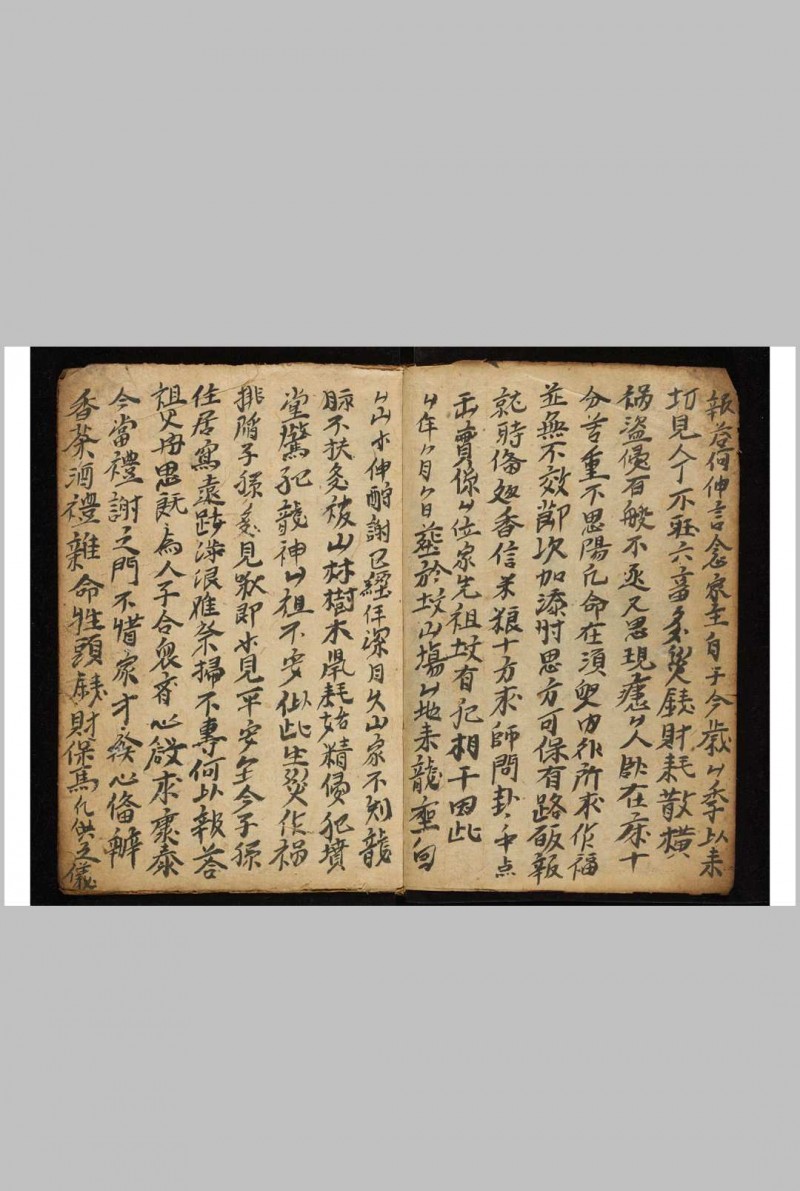 報答何伸言念家主自于今歲厶季以来
切見人丁不旺六畜多災錢財耗散橫
禍盜侵百般不丞又思現患厶人卧在床十
分苦重不思陽凡命在須臾内外所求作福
並無不效節次加添時思方可保有路皈報
就時俻廹香信米粮十方求師問卦卦中点
出實係厶位家先祖坟有犯相干因此
厶年厶月厶日葬於坟山塲厶地来龍座向
厶山水伸酧謝已經年深日久山家不利龍
脉不扶多被山林樹木鼠耗妖精侵犯墳
堂驚犯龍神厶祖不安似此生災作禍
排陷子孫多見歎即求見平安至今子孫
住居寫遠跋涉浪雅祭掃不專何以報答
祖父母思既為人子合衆齊心啟求康泰
今當禮謝之門不惜家才發心俻辦
香茶酒禮雜命牲頭錢財保馬凡供之儀